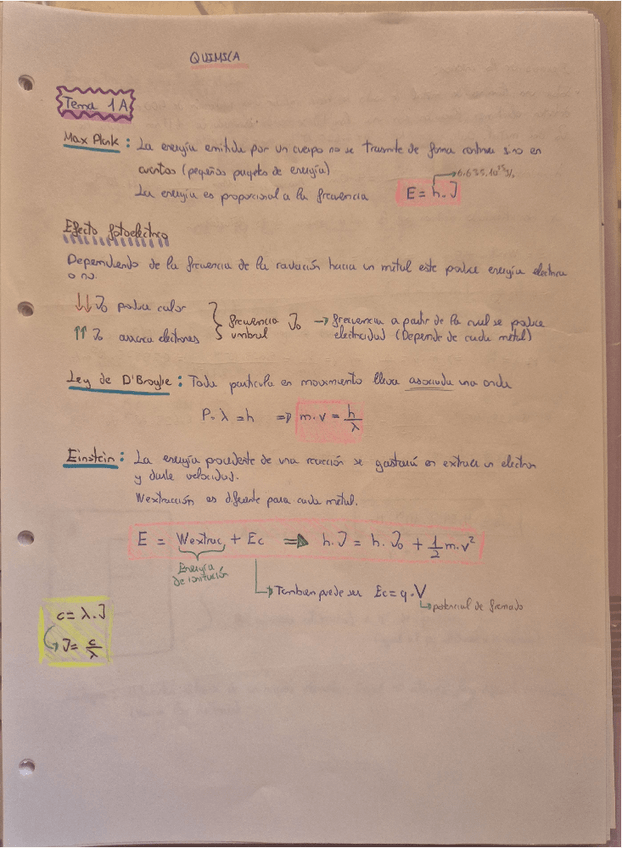 QUIMICA
Tema 1A
Max Plank: La energía emitida por un cuerpo no se trasmite de forma continua sino en
cuantos (pequeños paquetes de energía)
La energía es proporcional a la frecuencia E = h·ν
Efecto fotoelectrico
Dependiendo de la frecuencia de la radiación hacia un metal este produce energía electrica
o no.
↓↓ ν₀ produce calor
↑↑ ν₀ arranca electrones
frecuencia ν₀ → frecuencia a partir de la cual se produce
umbral electricidad (Depende de cada metal)
Ley de D'Broglie: Toda particula en movimiento lleva asociada una onda
P·λ = h ⇒ m·v = h/λ
Einstein: La energía procedente de una reacción se gastará en extraer un electron
y darle velocidad.
Wextracción es diferente para cada metal.
E = Wextrac. + Ec ⇒ h·ν = h·ν₀ + 1/2 m·v²
Energía
De ionización
Tambien puede ser Ec = q·V
potencial de frenado
c = λ·ν
ν = c/λ